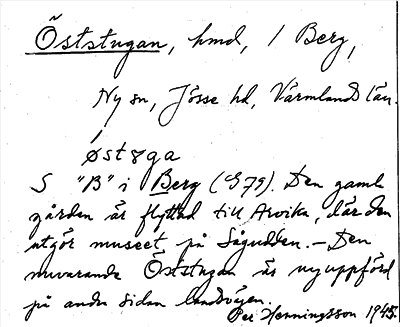 Öststugan, hmd, 1 Berg,
Ny sn, Jösse hd, Värmlands län.
østøga
S "B" i Berg (G79). Den gamla
gården är flyttad till Arvika, där den
utgör museet på Sågudden. – Den
nuvarande Öststugan är nyuppförd
på andra sidan landsvägen.
Per Henningsson 1945.